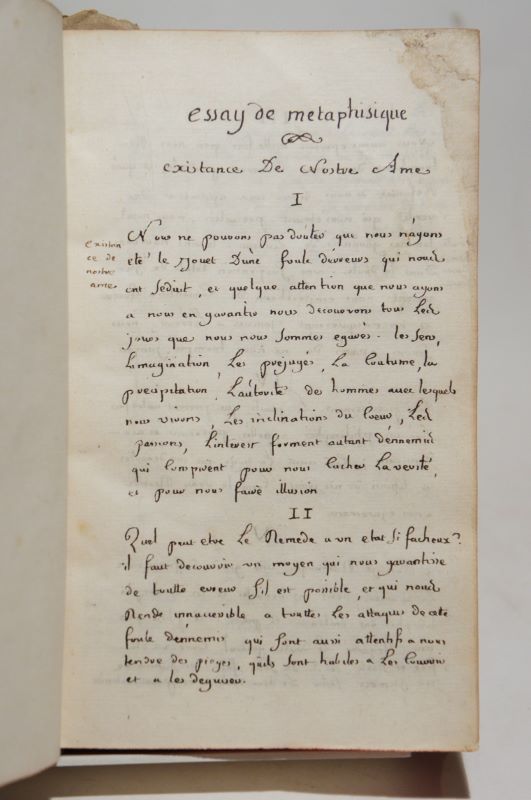 essay de metaphisique
existance De Nostre Ame
I
existan
ce de
nostre
ame
Nous ne pouvons pas douter que nous n'ayons
eté le Jouet D'une foule d'erreurs qui nous
ont seduit, et quelque attention que nous ayons
a nous en garantir nous decouvrons tous Les
jours que nous nous sommes egarés. les sens,
L'imagination, Les prejugés, La Coutume, la
precipitation, L'autorité des hommes avec lesquels
nous vivons, Les inclinations du Coeur, Les
passions, L'interest forment autant d'ennemis
qui Conspirent pour nous Cacher La verité,
et pour nous faire illusion
II
Quel peut etre Le Remede a un etat si facheux?
il faut decouvrir un moyen qui nous garantisse
de toutte erreur s'il est possible, et qui nous
Rende innacessible a touttes Les attaques de cete
foule d'ennemis qui sont aussi attentifs a nous
tendre des pieges, qu'ils sont habiles a Les Couvrir
et a les deguiser.